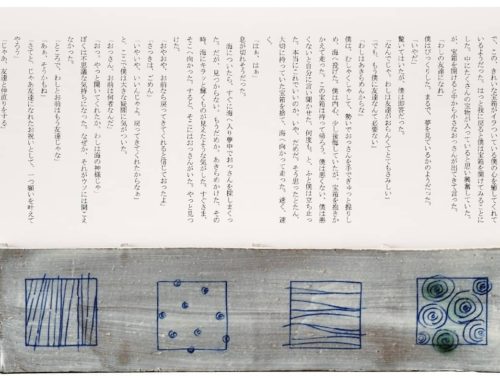 で、この、きれいな宝箱がイラついている僕の心を癒してくれて
いるようだった。はっと我に返ると僕は宝箱を開けてみることに
した。中にたくさんの宝物が入っていると思い興奮していた。
が、宝箱を開けると中から小さなおっさんが出てきて言った。
「わしの友達になれ」
僕はびっくりした。まるで、夢を見ているかのようだった。
驚いてはいたが、僕は即答だった。
「なんでじゃ、わしは友達がおらんくてとてもさみしい」
「でも、もう僕に友達なんて必要ない」
「わしはあきらめんからな」
僕は、むしゃくしゃして、勢いでおっさんを手でぎゅっと握りし
め、海へ投げた。僕は内心、少し後悔していたが、宝箱を抱きか
かえて走った。この宝箱は持って帰ろう。僕は悪くない。僕は悪
くないと自分に言い聞かせた。何度も。と、ふと僕は立ち止っ
た。本当にこれでいいのか。いや、だめだ。そう思ったとたん、
大切に持っていた宝箱を捨て、海へ向かって走った。速く、速
く。
「はぁ、はぁ」
息が切れそうだ。
海についたら、すぐに海へ入り夢中でおっさんを探しまくっ
た。だが、見つからない。もうだめか。あきらめかけた、その
時、海にキラッと輝くものが見えたような気がした。すぐさま、
そこへ向かった。すると、そこにはおっさんがいた。やっと見つ
けた。
「おやおや、お前なら戻ってきてくれると信じておったよ」
「さっきは、ごめん」
「いやいや、いいんじゃよ。戻ってきてくれたからなぁ」
と、ここで僕は大きな疑問に気がついた。
「おっさん、お前は何者なんだ」
「おっ、やっと聞いてくれたか。わしは海の神様じゃ」
ぼくは不思議な気持ちになった。なぜか、それがウソには聞こえ
なかった。
「ところで、わしとお前はもう友達じゃな」
「あぁ、そうかもね」
「さてと、じゃあ友達になれたお祝いとして、一つ願いを叶えて
やろう」
「じゃあ、友達と仲直りをする」